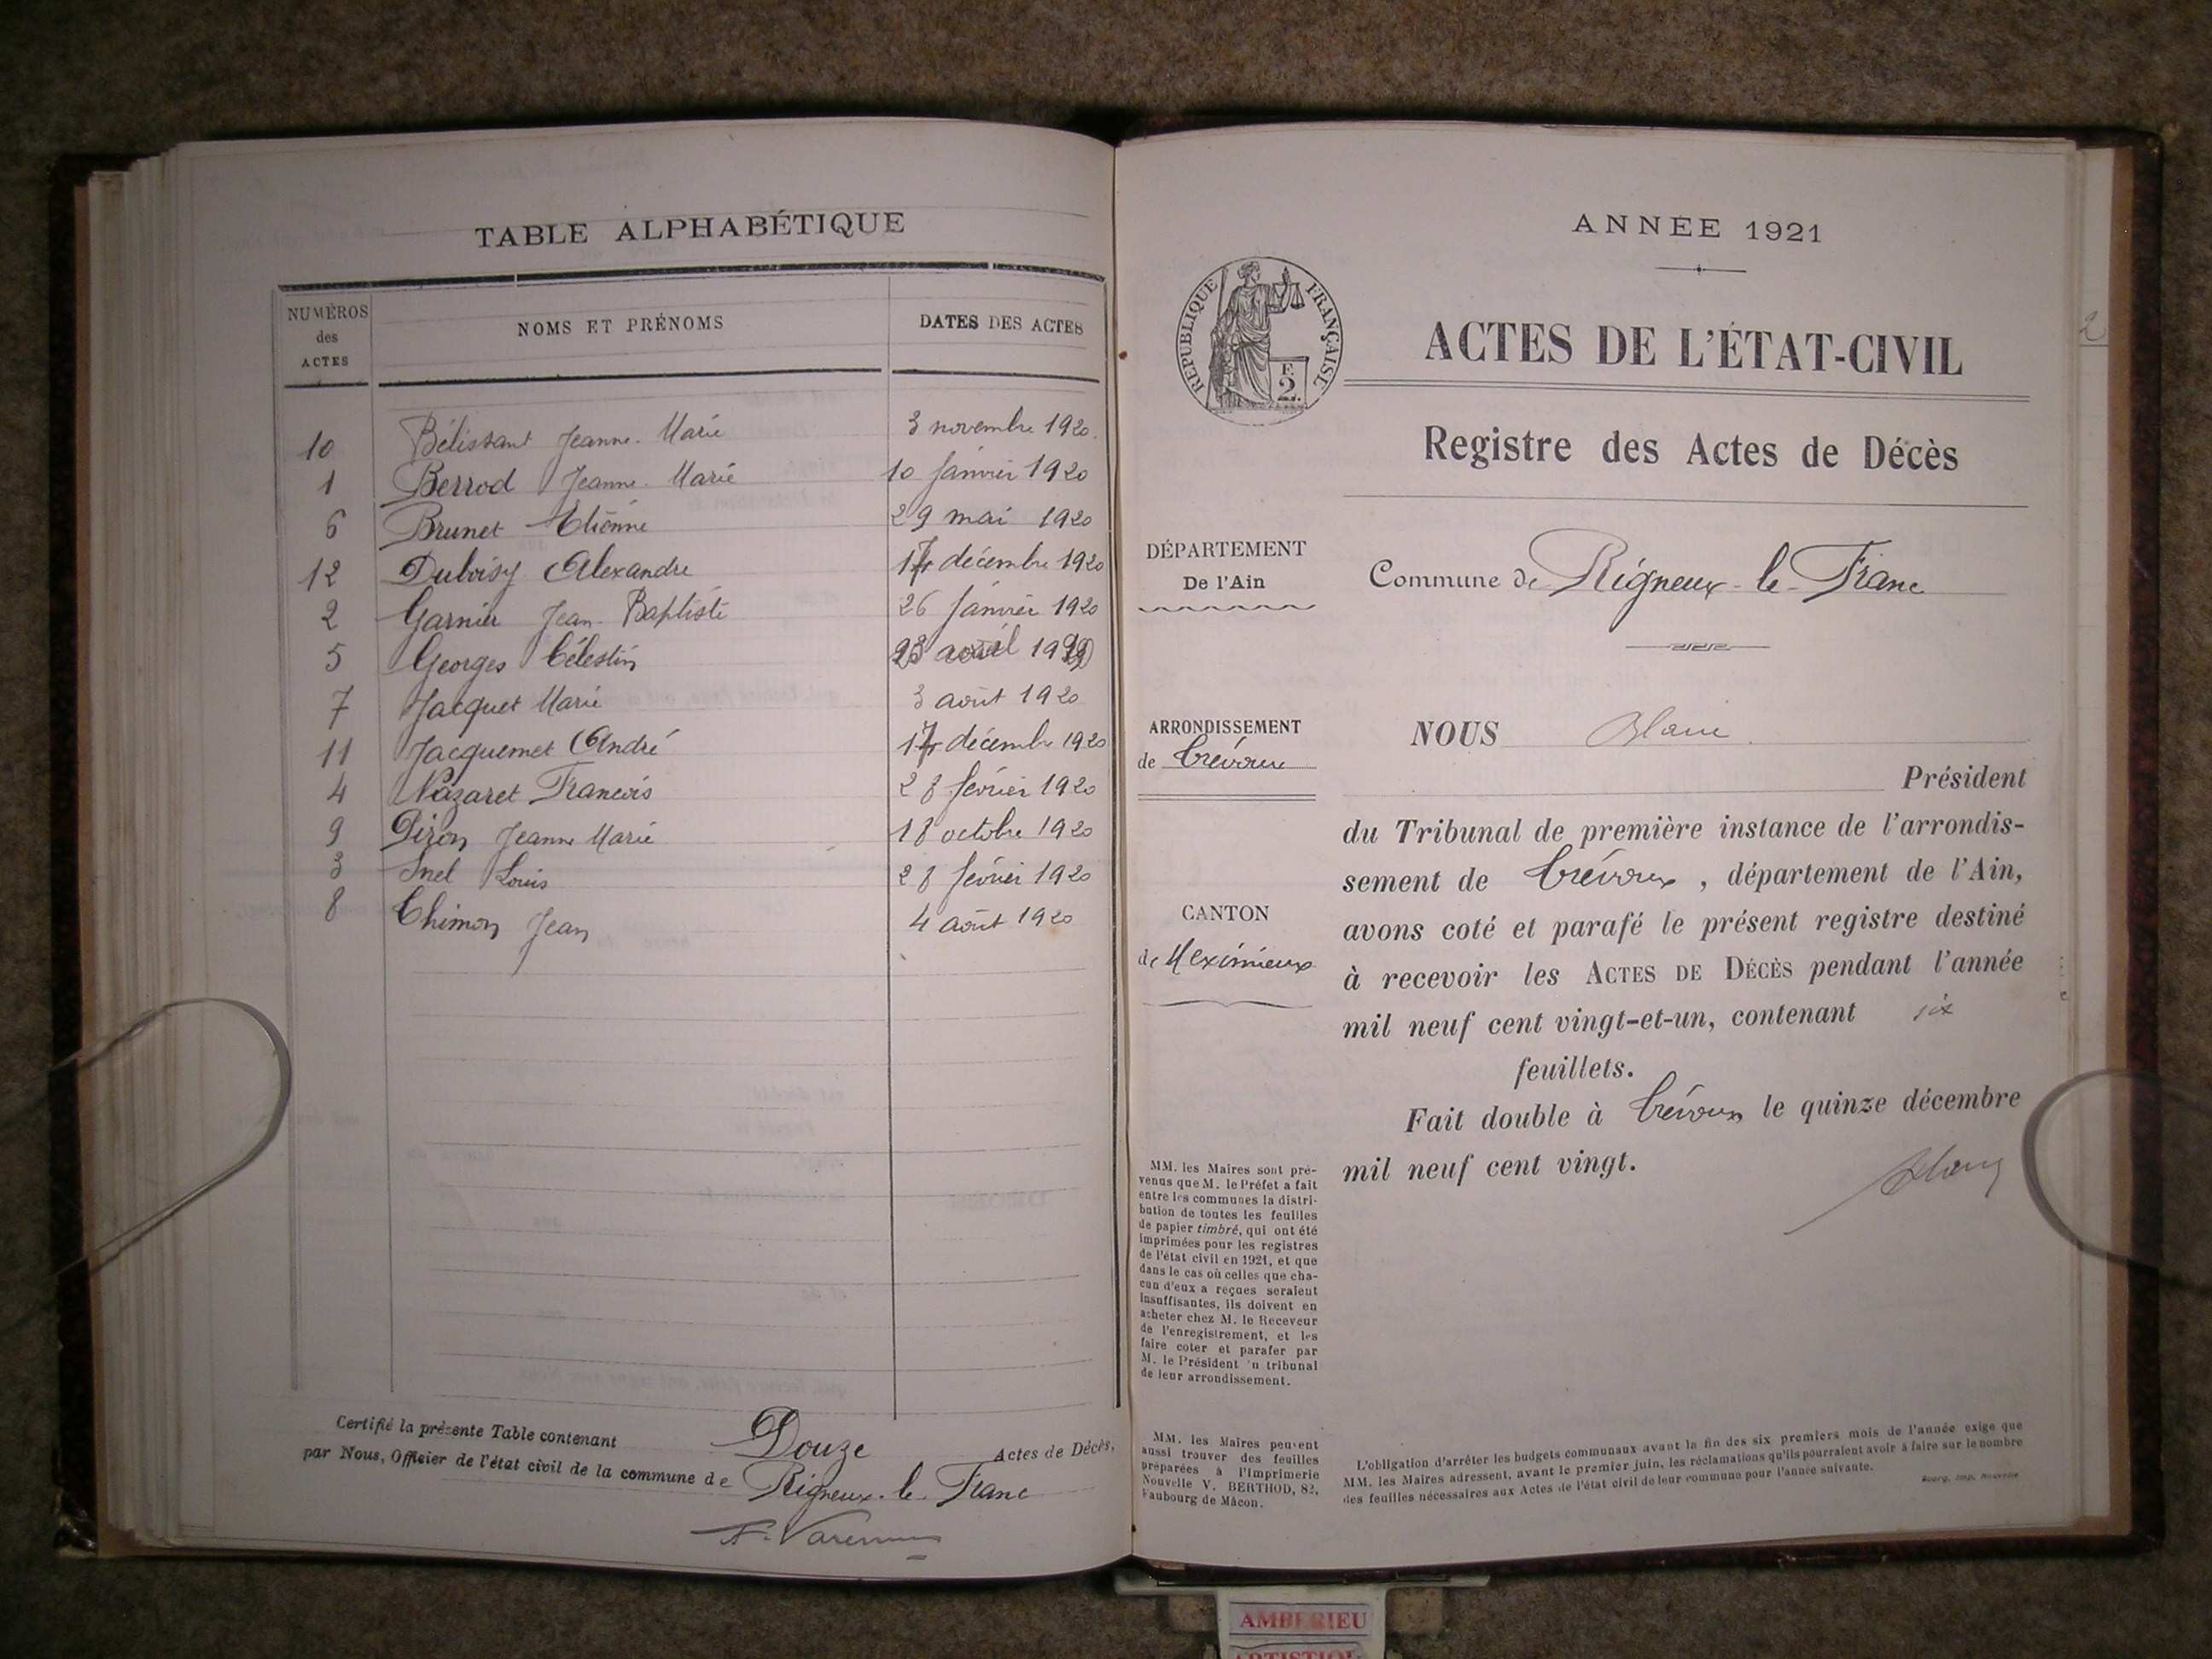 TABLE ALPHABÉTIQUE
NUMÉROS des ACTES
NOMS ET PRÉNOMS
DATES DES ACTES
10 Bélissant Jeanne-Marie 3 novembre 1920.
1 Berrod Jeanne-Marie 10 Janvier 1920
6 Brunet Etienne 29 mai 1920
12 Duboisy Alexandre décembre 1920
2 Garnier Jean-Baptiste 26 Janvier 1920
5 Georges Célestin avril
7 Jacquet Marie 3 août 1920
11 Jacquemet André décembre 1920
4 Nazaret Francois 28 février 1920
9 Piron Jeanne Marie 18 octobre 1920
3 Snel Louis 28 février 1920
8 Thimon Jean 4 août 1920
Certifié la présente Table contenant Douze Actes de Décès,
par Nous, Officier de l'état civil de la commune de Rigneux-le-Franc
ANNÉE 1921
RÉPUBLIQUE FRANÇAISE
F.
2.
ACTES DE L'ÉTAT-CIVIL
Registre des Actes de Décès
DÉPARTEMENT
De l'Ain
Commune de Rigneux-le-Franc
ARRONDISSEMENT
de Trévoux
CANTON
de Meximieux
NOUS
Président
du Tribunal de première instance de l'arrondis-
sement de Trévoux, département de l'Ain,
avons coté et parafé le présent registre destiné
à recevoir les ACTES DE DÉCÈS pendant l'année
mil neuf cent vingt-et-un, contenant six
feuillets.
Fait double à Trévoux, le quinze décembre
mil neuf cent vingt.
MM. les Maires sont pré-
venus que M. le Préfet a fait
entre les communes la distri-
bution de toutes les feuilles
de papier timbré, qui ont été
imprimées pour les registres
de l'état civil en 1921, et que
dans le cas où celles que cha-
cun d'eux a reçues seraient
insuffisantes, ils doivent en
acheter chez M. le Receveur
de l'enregistrement, et les
faire coter et parafer par
M. le Président 'u tribunal
de leur arrondissement.
MM. les Maires peuvent
aussi trouver des feuilles
préparées à l'Imprimerie
Nouvelle V. BERTHOD, 82,
Faubourg de Mâcon.
L'obligation d'arrêter les budgets communaux avant la fin des six premiers mois de l'année exige que
MM. les Maires adressent, avant le premier juin, les réclamations qu'ils pourraient avoir à faire sur le nombre
des feuilles nécessaires aux Actes de l'état civil de leur commune pour l'année suivante.
Bourg, Imp. Nouvelle
2
AMBERIEU